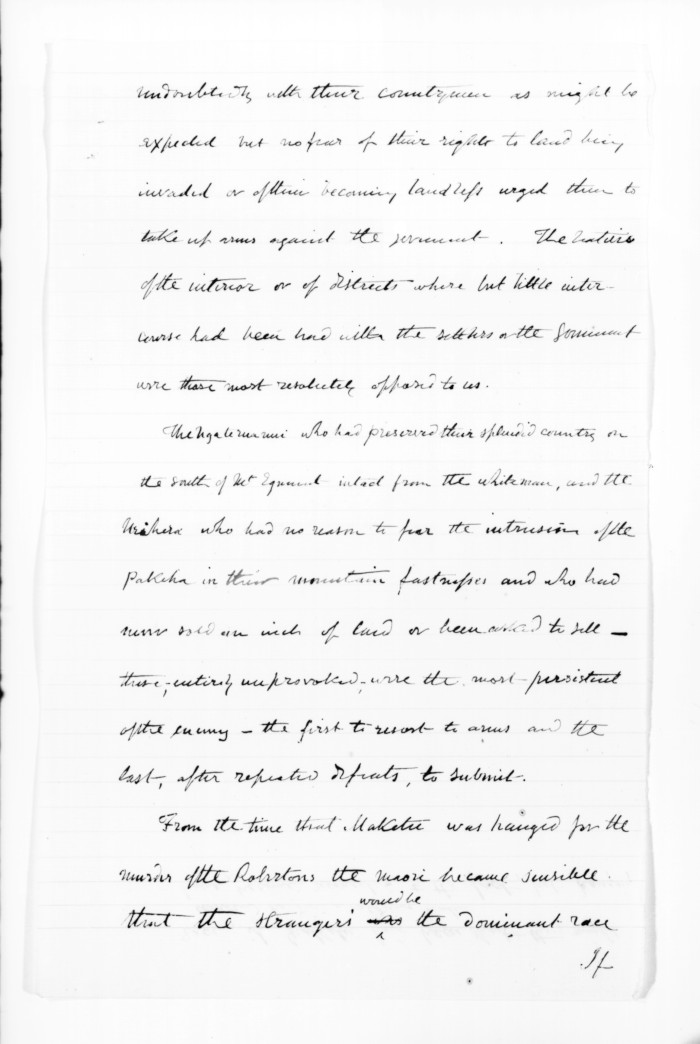 undoubtedly with their countrymen as might be
expected but no fear of their rights to land being
invaded or of their becoming landless urged them to
take up arms against the government. The natives
of the interior or of districts where but little inter-
course had been had with the settlers or the Government
were those most resolutely opposed to us.
The Ngateruanui who had preserved their splendid country on
the south of Mt Egmont intact from the white man, and the
Urewera who had no reason to fear the intrusion of the
Pakeha in their mountain fastnesses and who had
never sold an inch of land or been asked to sell —
these, entirely unprovoked, were the most persistent
of the enemy — the first to resort to arms and the
last, after repeated defeats, to submit.
From the time that Maketu was hanged for the
murder of the Robertons the maori became sensible
that the strangers would be the dominant race
If